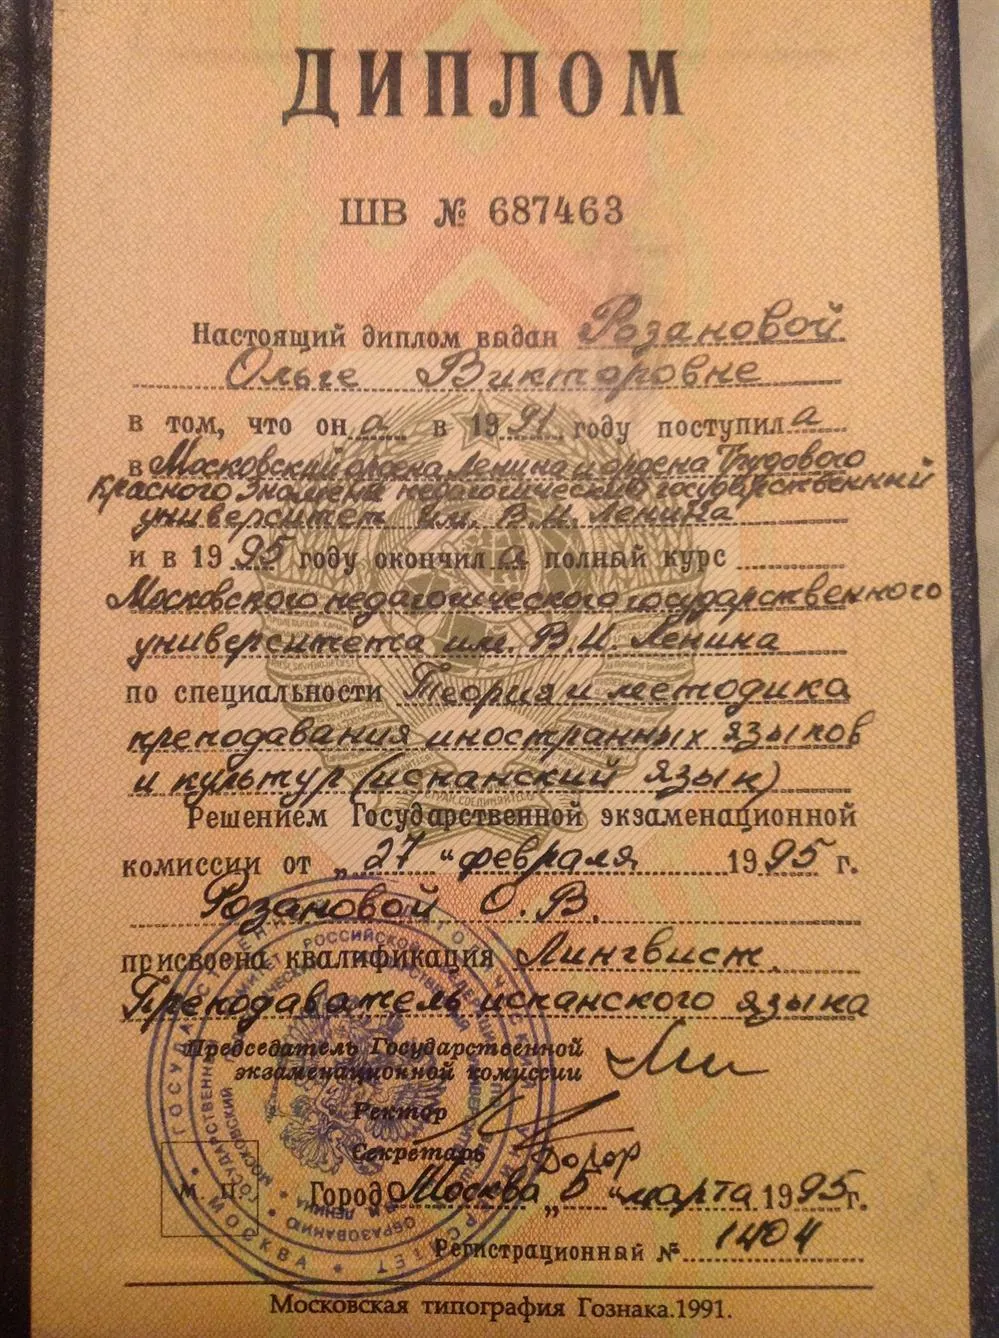 ДИПЛОМ
ШВ № 687463
Настоящий диплом выдан Розановой
Ольге Викторовне
в том, что она в 1991 году поступила
в Московский ордена Ленина и ордена Трудового
Красного Знамени педагогический государственный
университет им. В.И. Ленина
и в 1995 году окончила полный курс
Московского педагогического государственного
университета им. В.И. Ленина
по специальности Теория и методика
преподавания иностранных языков
и культур (испанский язык)
Решением Государственной экзаменационной
комиссии от „27" февраля 1995 г.
Розановой О.В.
присвоена квалификация Лингвист.
Преподаватель испанского языка
Председатель Государственной
экзаменационной комиссии
Ректор
Секретарь
М. П. Город Москва „5" марта 1995 г.
Регистрационный № 1404
Московская типография Гознака.1991.